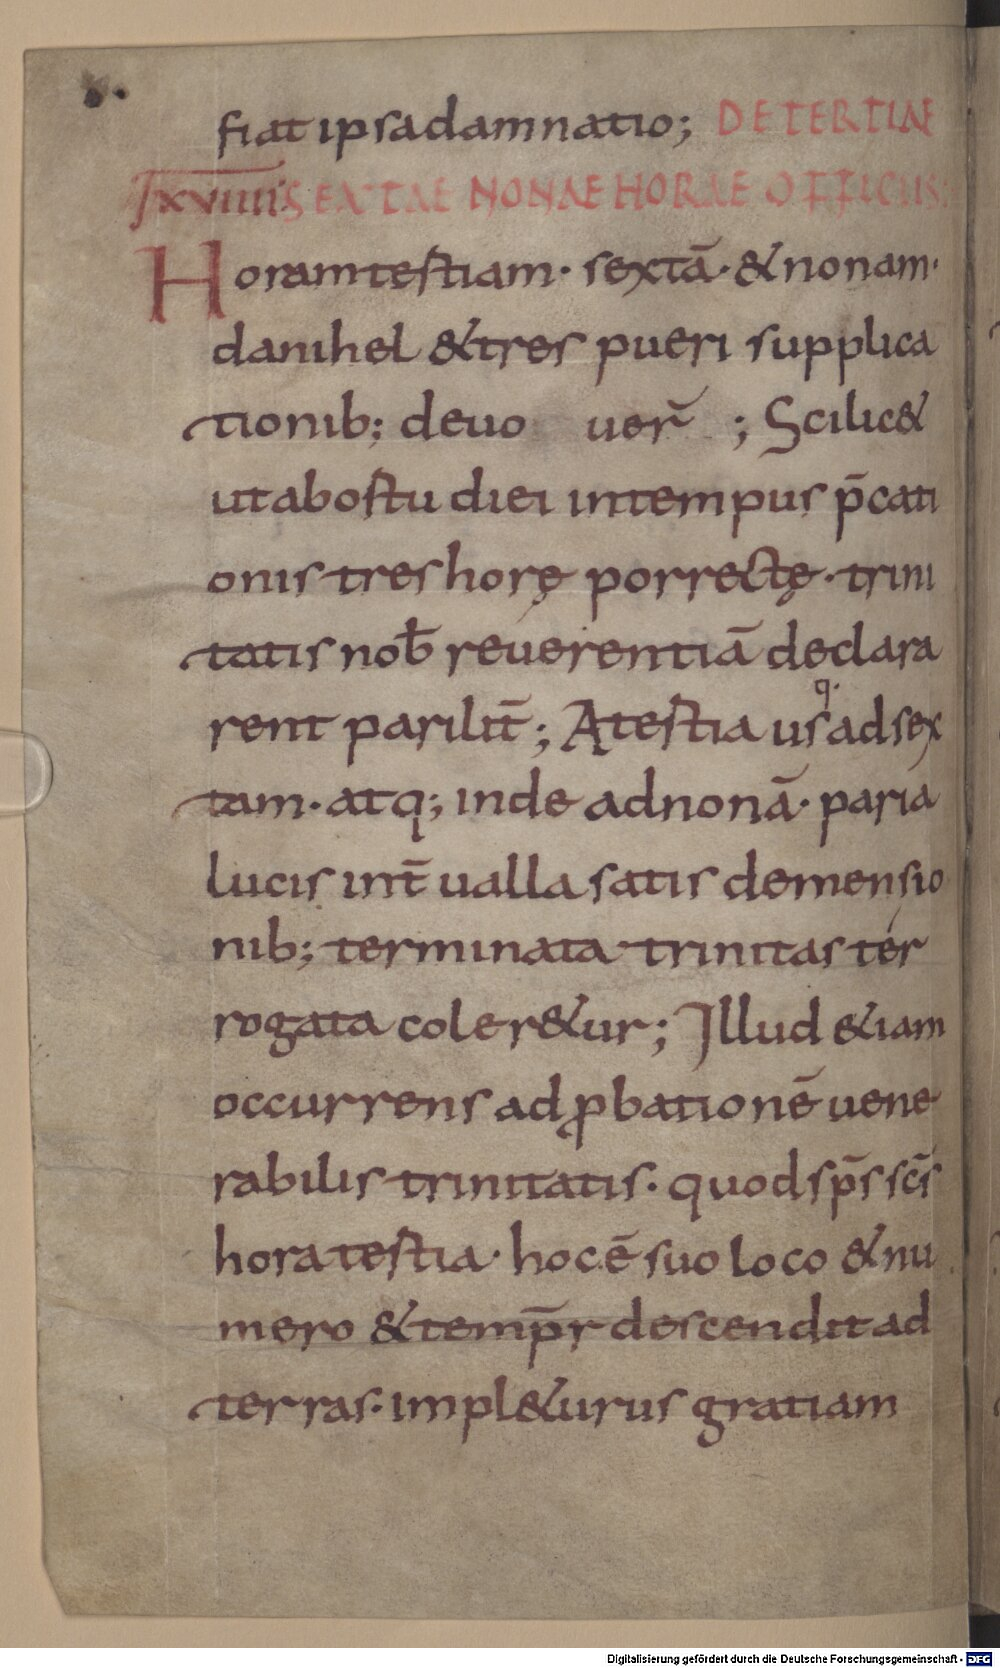 fiat ipsa damnatio; DE TERTIAE
XVIIII SEXTAE NONAE HORAE OFFICIIS:
Horam testiam· sextā· & nonam·
danihel & tres pueri supplica
tionib; deuo uer̄ ; Scilic&
ut ab ostu diei in tempus p̄cati
onis tres horę porrectę· trini
tatis nob̄ reuerentiā declara
rent parilit̄; A testia usq· ad sex
tam· atq; inde ad nonā· paria
lucis int̄ualla satis demensio
nib; terminata trinitas ter
rogata coler&ur; Illud &iam
occurrens ad ꝓbationē uene
rabilis trinitatis· quod sp̄s sc̄s
hora testia· hoc ē suo loco & nu
mero & temp̄r descendit ad
terras· impl&urus gratiam
Digitalisierung gefördert durch die Deutsche Forschungsgemeinschaft - DFG